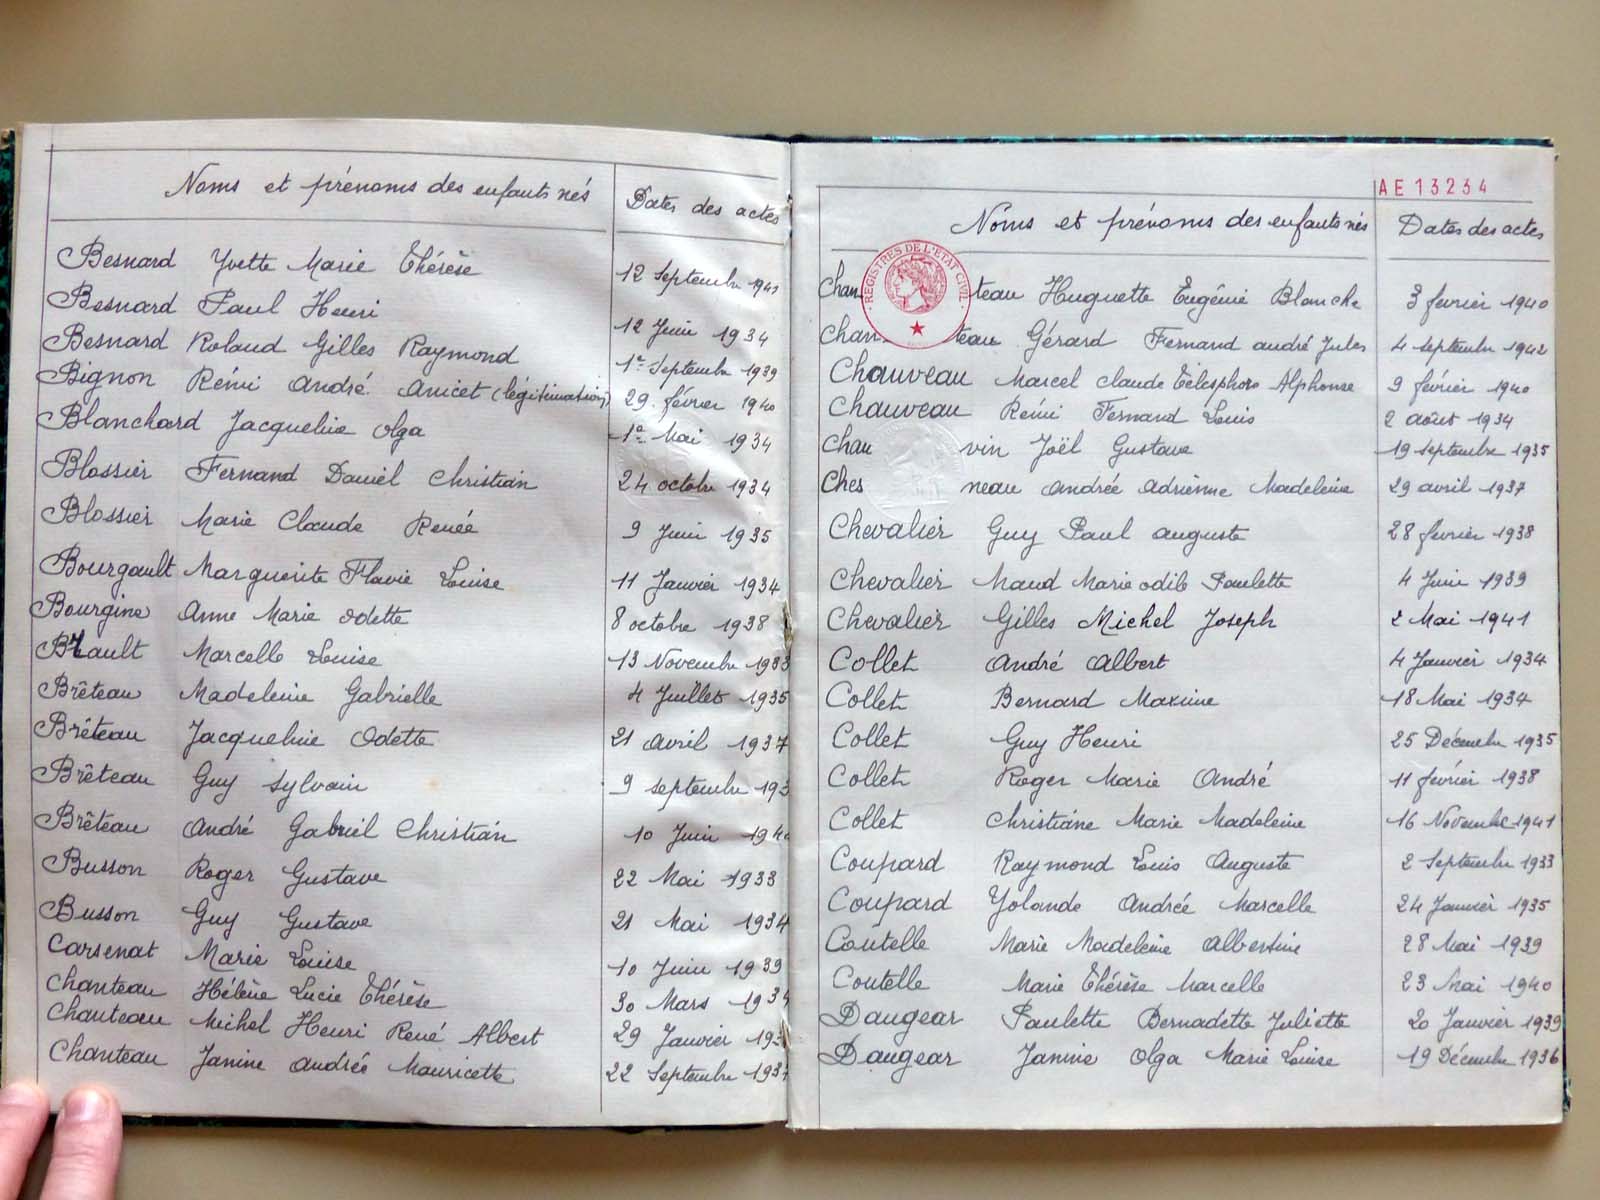 Noms et prénoms des enfants nés Dates des actes
Besnard Yvette Marie Thérèse 12 Septembre 1941
Besnard Paul Henri 12 Juin 1934
Besnard Roland Gilles Raymond 1er Septembre 1939
Bignon Rémi André Anicet (légitimation) 29 février 1940
Blanchard Jacqueline Olga 1er Mai 1934
Blossier Fernand Daniel Christian 24 octobre 1934
Blossier Marie Claude Renée 9 Juin 1935
Bourgault Marguerite Flavie Louise 11 Janvier 1934
Bourgine Anne Marie Odette 8 octobre 1938
Brault Marcelle Louise 13 Novembre 1933
Brêteau Madeleine Gabrielle 4 Juillet 1935
Brêteau Jacqueline Odette 21 avril 1937
Brêteau Guy Sylvain 9 septembre 193
Brêteau André Gabriel Christian 10 Juin 194
Busson Roger Gustave 22 Mai 1933
Busson Guy Gustave 21 Mai 1934
Carsenat Marie Louise 10 Juin 1939
Chanteau Hélène Lucie Thérèse 30 Mars 1934
Chanteau Michel Henri René Albert 29 Janvier 193
Chanteau Janine Andrée Mauricette 22 Septembre 1937
AE 13234
Noms et prénoms des enfants nés Dates des actes
REGISTRES DE L'ETAT CIVIL
Chanteau Huguette Eugénie Blanche 3 fevrier 1940
Chanteau Gérard Fernand André Jules 4 septembre 1942
Chauveau Marcel Claude Télesphore Alphonse 9 février 1940
Chauveau Rémi Fernand Louis 2 août 1934
Chauvin Joël Gustave 19 septembre 1935
Chesneau Andrée Adrienne Madeleine 29 avril 1937
Chevalier Guy Paul Auguste 28 fevrier 1938
Chevalier Maud Marie Odile Paulette 4 Juin 1939
Chevalier Gilles Michel Joseph 2 Mai 1941
Collet André Albert 4 Janvier 1934
Collet Bernard Maxime 18 Mai 1934
Collet Guy Henri 25 Décembre 1935
Collet Roger Marie André 11 février 1938
Collet Christiane Marie Madeleine 16 Novembre 1941
Coupard Raymond Louis Auguste 2 Septembre 1933
Coupard Yolande Andrée Marcelle 24 Janvier 1935
Coutelle Marie Madeleine Albertine 28 Mai 1939
Coutelle Marie Thérèse Marcelle 23 Mai 1940
Daugear Paulette Bernadette Juliette 20 Janvier 1939
Daugear Janine Olga Marie Louise 19 Décembre 1936